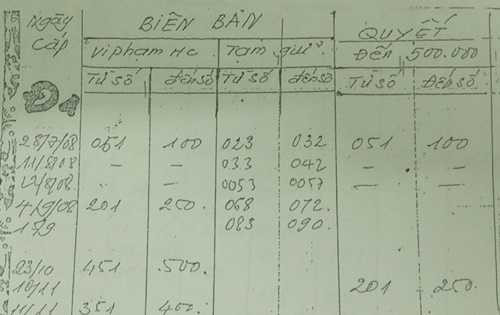 Ngày cấp BIÊN BẢN QUYẾT
Vi phạm HC Tạm giữ Đến 500.000
Từ số đến số Từ số đến số Từ số Đến số
Đ4
28/7/08 051 100 023 032 051 100
11/8/08 — — 033 042 — —
12/8/08 — — 0053 0057 — —
4/9/08 201 250 068 072
179 083 090
23/10 451 500
10/11 201 250
14/11 351 400